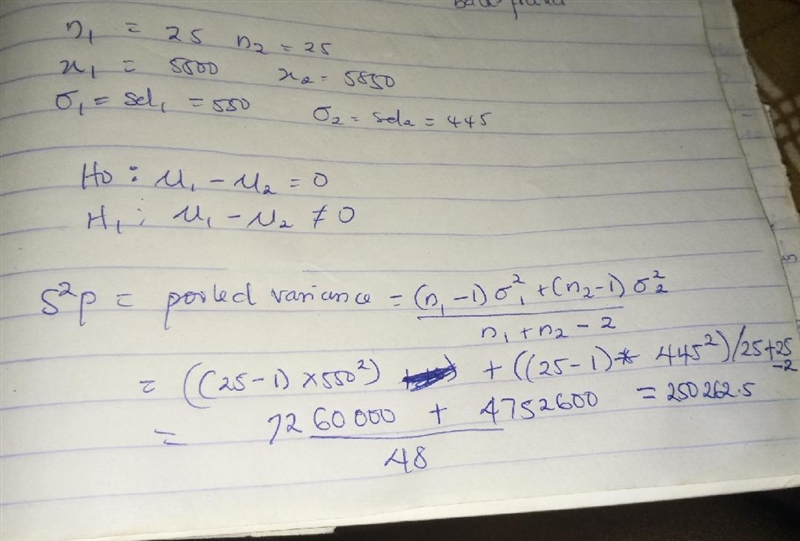 n₁ = 25 n₂ = 25
x₁ = 5500 x₂ = 5850
σ₁ = sd₁ = 550 σ₂ = sd₂ = 445
Ho : μ₁ - μ₂ = 0
H₁ : μ₁ - μ₂ ≠ 0
S²p = pooled variance = (n₁ -1) σ₁² + (n₂-1) σ₂²
n₁ + n₂ - 2
= ((25-1) × 550²) + ((25-1) * 445²)/25+25
-2
= 7260000 + 4752600 = 250262.5
48